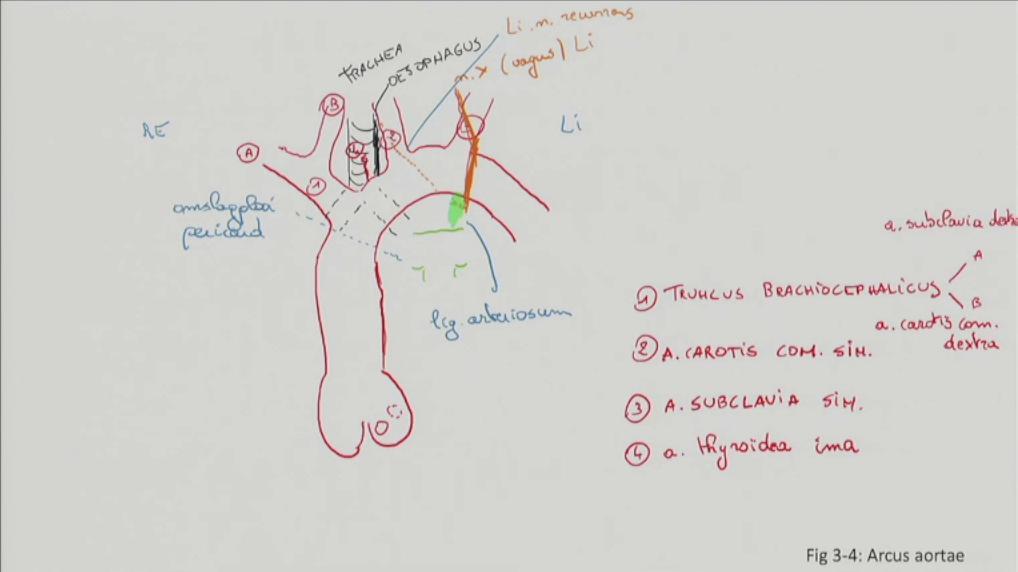 Li. n. recurrens
n. X (vagus) Li
TRACHEA
OESOPHAGUS
RE
Li
B
2
3
4
A
1
omslagplooi
pericard
lig. arteriosum
a. subclavia dextr
A
1 TRUNCUS BRACHIOCEPHALICUS
B
a. carotis com.
dextra
2 A. CAROTIS COM. SIN.
3 A. SUBCLAVIA SIN.
4 a. thyroidea ima
Fig 3-4: Arcus aortae